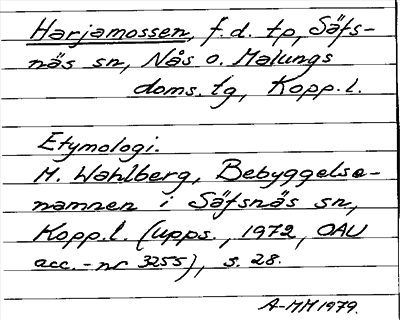 Harjamossen, f.d. tp, Säfs-
näs sn, Nås o. Malungs
doms. tg, Kopp. l.
Etymologi.
M. Wahlberg, Bebyggelse-
namnen i Säfsnäs sn,
Kopp.l. (Upps., 1972, OAU
acc.-nr 3255), s. 28.
A-MM 1979.